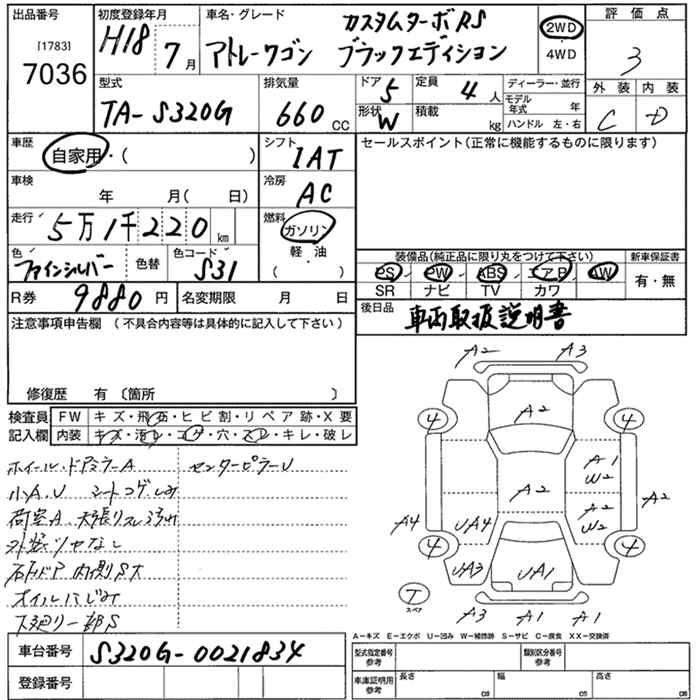 出品番号
[1783]
7036
初度登録年月
H18 7月
車名・グレード
カスタムターボRS
アトレーワゴン ブラックエディション
2WD
4WD
評価点
3
外装 内装
C D
型式
TA-S320G
排気量
660 CC
ドア 5
定員 4人
形状 W
積載 kg
ディーラー・並行
モデル年式 年
ハンドル 左・右
車歴
自家用・( )
シフト
IAT
車検
年 月( 日)
冷房
AC
走行
5万1千220 km
燃料
ガソリン
軽・油
( )
色
ファインシルバー
色替
色コード
S31
R券 9880円
名変期限 月 日
セールスポイント(正常に機能するものに限ります)
装備品(純正品に限り丸をつけて下さい)
PS PW ABS エアB AW
SR ナビ TV カワ
新車保証書
有・無
後日品
車両取扱説明書
注意事項申告欄 (不具合内容等は具体的に記入して下さい)
修復歴 有 〔箇所 〕
検査員記入欄
FW キズ・飛石・ヒビ割・リペア跡・X要
内装 キズ・汚レ・コゲ・穴・スレ・キレ・破レ
ホイール・ドアミラーA センターピラーU
小A.U シートコゲ.しみ
荷室A.天張りスレ汚れ
外装ツヤなし
内側S大
オイルにじみ
下廻り一部S
A2 A3
4 4
A2
A1
W2
A2
A2
W2
A2
A4
UA4
4 4
UA3
UA1
T
スペア
A3 A1 A1
A-キズ E-エクボ U-凹み W-補修跡 S-サビ C-腐食 XX-交換済
車台番号 S320G-0021834
登録番号
型式指定番号 参考
類別区分番号 参考
車庫証明用 参考
長さ cm
幅 cm
高さ cm